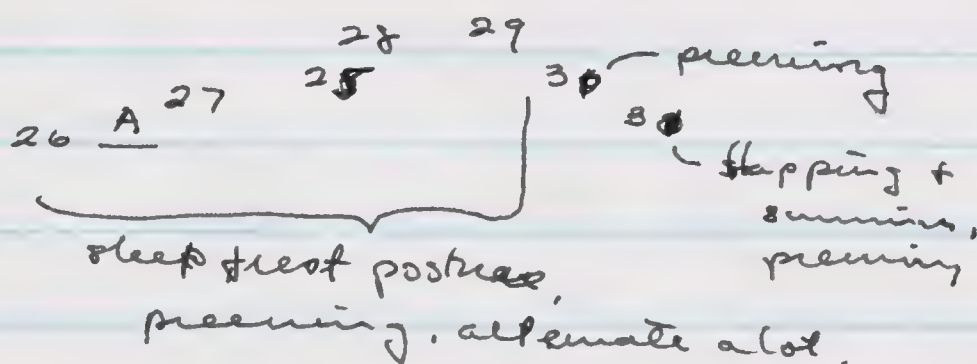 28 29
26 A 27 25 30 preening
30
flapping +
swimming,
preening
sleep + rest postures,
preening, alternate a lot.